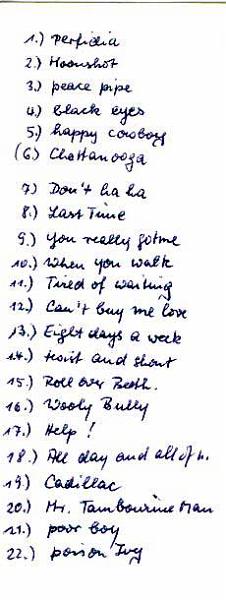 1.) Perfidia
2.) Moonshot
3.) peace pipe
4.) black eyes
5.) happy cowboy
(6.) Chattanooga
7.) Don't ha ha
8.) Last Time
9.) you really got me
10.) When you walk
11.) Tired of waiting
12.) Can't buy me love
13.) Eight days a week
14.) twist and shout
15.) Roll over Beeth.
16.) Wooly Bully
17.) Help!
18.) All day and all of n.
19.) Cadillac
20.) Mr. Tambourine Man
21.) poor boy
22.) poison Ivy